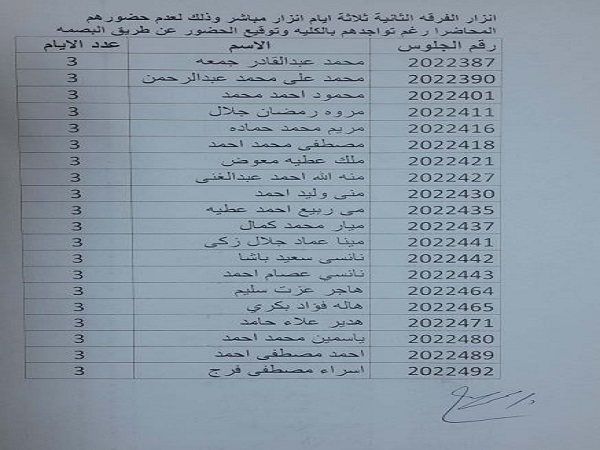 انزار الفرقه الثانية ثلاثة ايام انزار مباشر وذلك لعدم حضورهم
المحاضرا رغم تواجدهم بالكليه وتوقيع الحضور عن طريق البصمه
رقم الجلوس الاسم عدد الايام
2022387 محمد عبدالقادر جمعه 3
2022390 محمد على محمد عبدالرحمن 3
2022401 محمود احمد محمد 3
2022411 مروه رمضان جلال 3
2022416 مريم محمد حماده 3
2022418 مصطفى محمد احمد 3
2022421 ملك عطيه معوض 3
2022427 منه الله احمد عبدالغنى 3
2022430 منى وليد احمد 3
2022435 مى ربيع احمد عطيه 3
2022437 ميار محمد كمال 3
2022441 مينا عماد جلال زكى 3
2022442 نانسى سعيد باشا 3
2022443 نانسي عصام احمد 3
2022464 هاجر عزت سليم 3
2022465 هاله فؤاد بكري 3
2022471 هدير علاء حامد 3
2022480 ياسمين محمد احمد 3
2022489 احمد مصطفى احمد 3
2022492 اسراء مصطفى فرج 3